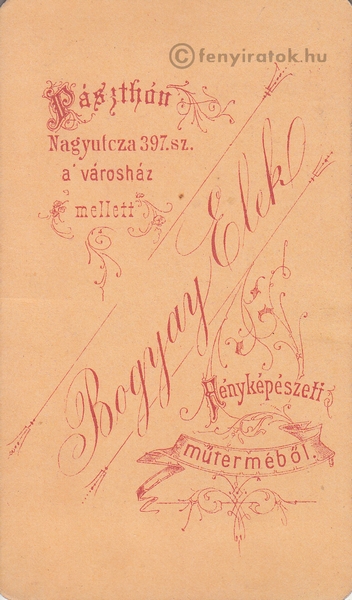 ©fenyiratok.hu
Pászthón
Nagyutcza 397.sz.
a' városház
mellett
Bogyay Elek
Fényképészeti
műterméből.